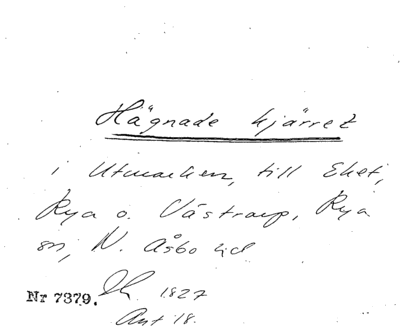 Hägnade kjärret
i Utmarken, till Eket,
Rya o. Västraup, Rya
sn, N. Åsbo hd
Nr 7379. 1827
Avt 18.